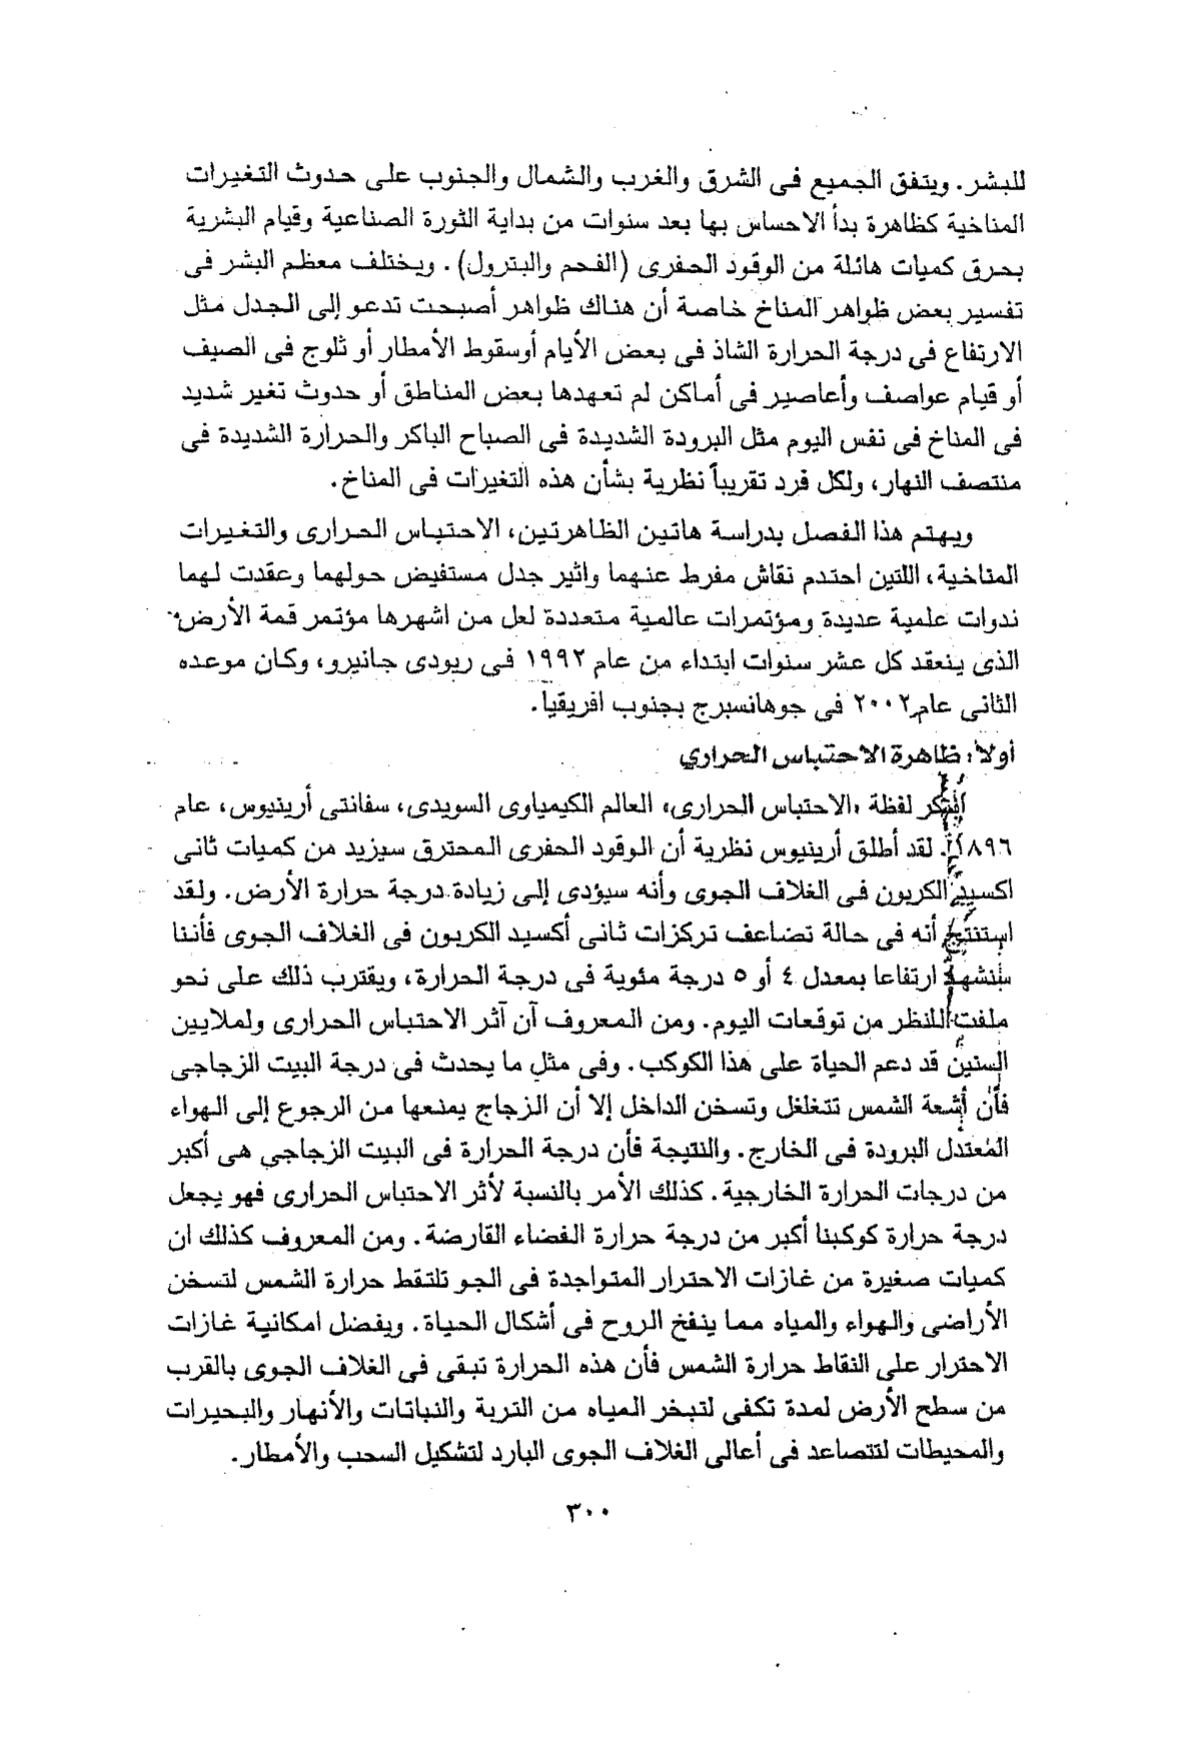 للبشر. ويتفق الجميع فى الشرق والغرب والشمال والجنوب على حدوث التغيرات
المناخية كظاهرة بدأ الاحساس بها بعد سنوات من بداية الثورة الصناعية وقيام البشرية
بحرق كميات هائلة من الوقود الحفرى (الفحم والبترول). ويختلف معظم البشر فى
تفسير بعض ظواهر المناخ خاصة أن هناك ظواهر أصبحت تدعو إلى الجدل مثل
الارتفاع فى درجة الحرارة الشاذ فى بعض الأيام أوسقوط الأمطار أو ثلوج فى الصيف
أو قيام عواصف وأعاصير فى أماكن لم تعهدها بعض المناطق أو حدوث تغير شديد
فى المناخ فى نفس اليوم مثل البرودة الشديدة فى الصباح الباكر والحرارة الشديدة فى
منتصف النهار، ولكل فرد تقريباً نظرية بشأن هذه التغيرات فى المناخ.
ويهتم هذا الفصل بدراسة هاتين الظاهرتين، الاحتباس الحرارى والتغيرات
المناخية، اللتين احتدم نقاش مفرط عنهما واثير جدل مستفيض حولهما وعقدت لهما
ندوات علمية عديدة ومؤتمرات عالمية متعددة لعل من اشهرها مؤتمر قمة الأرض
الذى ينعقد كل عشر سنوات ابتداء من عام ١٩٩٢ فى ريودى جانيرو، وكان موعده
الثانى عام ٢٠٠٢ فى جوهانسبرج بجنوب افريقيا.
أولاً: ظاهرة الاحتباس الحراري
أبتكر لفظة «الاحتباس الحرارى» العالم الكيمياوى السويدى، سفانتى أرينيوس، عام
١٨٩٦. لقد أطلق أرينيوس نظرية أن الوقود الحفرى المحترق سيزيد من كميات ثانى
اكسيد الكربون فى الغلاف الجوى وأنه سيؤدى إلى زيادة درجة حرارة الأرض. ولقد
استنتج أنه فى حالة تضاعف تركزات ثانى أكسيد الكربون فى الغلاف الجوى فأننا
سنشهد ارتفاعا بمعدل ٤ أو ٥ درجة مئوية فى درجة الحرارة، ويقترب ذلك على نحو
ملفت للنظر من توقعات اليوم. ومن المعروف آن آثر الاحتباس الحرارى ولملايين
السنين قد دعم الحياة على هذا الكوكب. وفى مثل ما يحدث فى درجة البيت الزجاجى
فأن أشعة الشمس تتغلغل وتسخن الداخل إلا أن الزجاج يمنعها من الرجوع إلى الهواء
المعتدل البرودة فى الخارج. والنتيجة فأن درجة الحرارة فى البيت الزجاجى هى أكبر
من درجات الحرارة الخارجية. كذلك الأمر بالنسبة لأثر الاحتباس الحرارى فهو يجعل
درجة حرارة كوكبنا أكبر من درجة حرارة الفضاء القارضة. ومن المعروف كذلك ان
كميات صغيرة من غازات الاحترار المتواجدة فى الجو تلتقط حرارة الشمس لتسخن
الأراضى والهواء والمياه مما ينفخ الروح فى أشكال الحياة. ويفضل امكانية غازات
الاحترار على التقاط حرارة الشمس فأن هذه الحرارة تبقى فى الغلاف الجوى بالقرب
من سطح الأرض لمدة تكفى لتبخر المياه من التربة والنباتات والأنهار والبحيرات
والمحيطات لتتصاعد فى أعالى الغلاف الجوى البارد لتشكيل السحب والأمطار.
٣٠٠